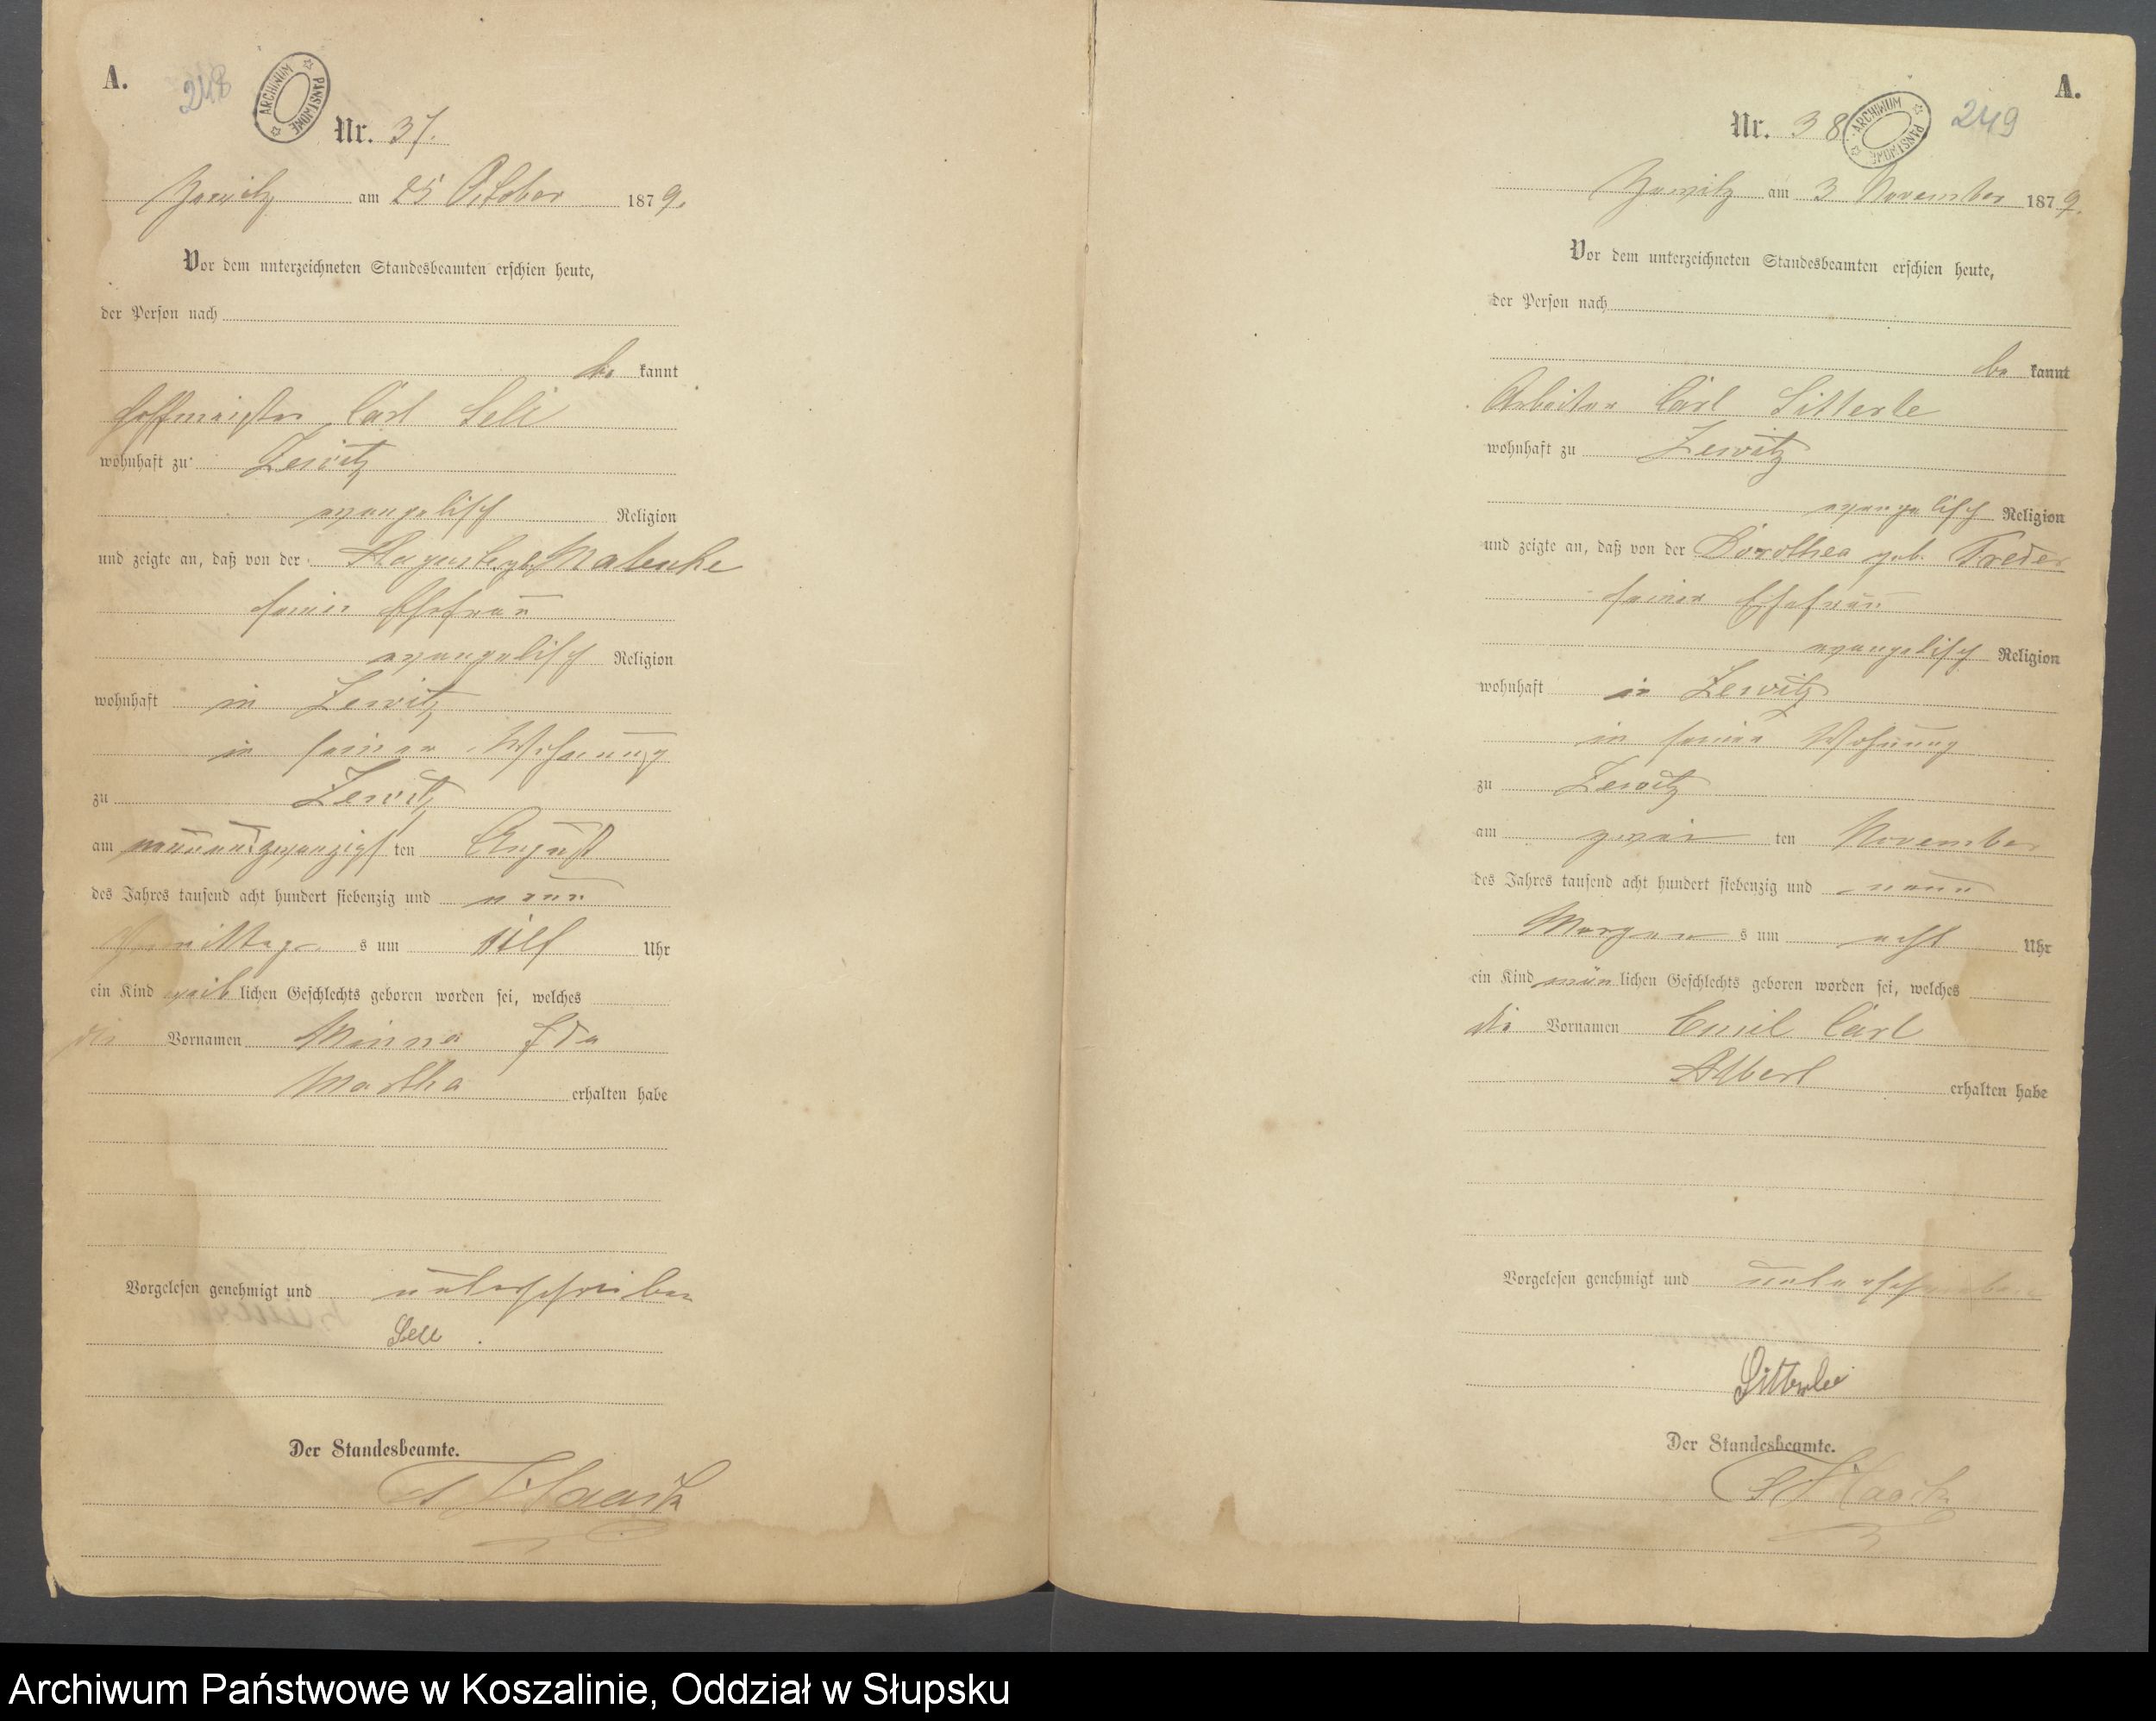 A.
248
ARCHIWUM PAŃSTWOWE
Nr. 37.
Zewitz am 25 October 1879.
Vor dem unterzeichneten Standesbeamten erschien heute,
der Person nach
be kannt
Hoffmeister Carl Sell
wohnhaft zu Zewitz
evangelisch Religion
und zeigte an, daß von der
seiner Ehefrau
evangelisch Religion
wohnhaft in Zewitz
in seiner Wohnung
zu Zewitz
am neunundzwanzigsten August
des Jahres tausend acht hundert siebenzig und neun
Vormittags um Uhr
ein Kind weiblichen Geschlechts geboren worden sei, welches
die Vornamen Minna Ida
Martha erhalten habe
Vorgelesen genehmigt und unterschrieben
Sell.
Der Standesbeamte.
A.
Nr. 38
ARCHIWUM PAŃSTWOWE
249
Zewitz am 3 November 1879.
Vor dem unterzeichneten Standesbeamten erschien heute,
der Person nach
be kannt
Arbeiter Carl Litterle
wohnhaft zu Zewitz
evangelisch Religion
und zeigte an, daß von der Dorothea geb. Treder
seiner Ehefrau
evangelisch Religion
wohnhaft in Zewitz
in seiner Wohnung
zu Zewitz
am zwei ten November
des Jahres tausend acht hundert siebenzig und neun
Morgens um acht Uhr
ein Kind männlichen Geschlechts geboren worden sei, welches
die Vornamen Emil Carl
Albert erhalten habe
Vorgelesen genehmigt und unterschrieben
Der Standesbeamte.
Archiwum Państwowe w Koszalinie, Oddział w Słupsku